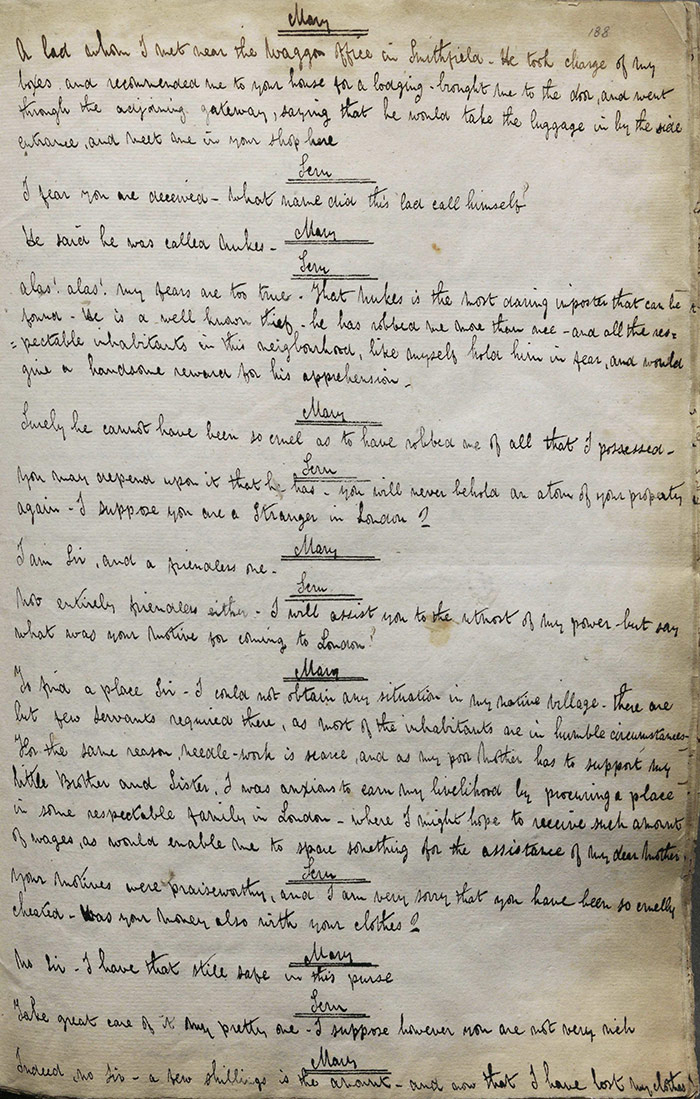 Mary
188
A lad whom I met near the Waggon Office in Smithfield - He took charge of my
boxes, and recommended me to your house for a lodging - brought me to the door, and went
through the adjoining gateway, saying that he would take the luggage in by the side
entrance, and meet me in your shop here
Fern
I fear you are deceived - What name did this lad call himself?
Mary
He said he was called Nukes -
Fern
alas! alas! my fears are too true - That Nukes is the most daring imposter that can be
found - He is a well known thief - he has robbed me more than once - and all the res=
=pectable inhabitants in this neigbourhood, like myself hold him in fear, and would
give a handsome reward for his apprehension -
Mary
Surely he cannot have been so cruel as to have robbed me of all that I possessed -
Fern
you may depend upon it that he has - you will never behold an atom of your property
again - I suppose you are a Stranger in London?
Mary
I am Sir, and a friendless one -
Fern
Not entirely friendless either - I will assist you to the utmost of my power - but say
what was your motive for coming to London?
Mary
To find a place Sir - I could not obtain any situation in my native village - there are
but few Servants required there, as most of the inhabitants are in humble circumstances -
For the same reason, needle-work is scarce, and as my poor Mother has to support my
little Brother and Sister, I was anxious to earn my livelihood by procuring a place
in some respectable family in London - where I might hope to receive such amount
of wages, as would enable me to spare something for the assistance of my dear Mother.
Fern
your motives were praiseworthy, and I am very sorry that you have been so cruelly
cheated - Was your money also with your clothes?
Mary
No Sir - I have that still safe in this purse
Fern
Take great care of it my pretty one - I suppose however you are not very rich
Mary
Indeed, no Sir - a few shillings is the amount - and now that I have lost my clothes